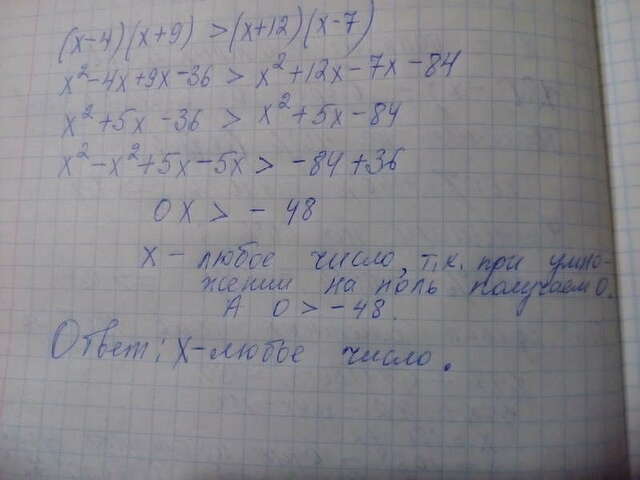 (x-4)(x+9) > (x+12)(x-7)
x²-4x+9x-36 > x²+12x-7x-84
x²+5x-36 > x²+5x-84
x²-x²+5x-5x > -84+36
0x > - 48
x - любое число, т.к. при умно-
жении на ноль получаем 0.
А 0 > -48.
Ответ: x-любое число.